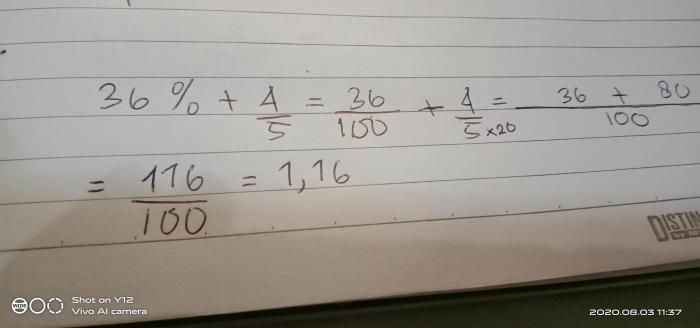 36 % + 4/5 = 36/100 + 4/5 ×20 = 36 + 80/100
= 116/100 = 1,16
DISTIN
by M
WIDE
Shot on Y12
Vivo AI camera
2020.08.03 11:37